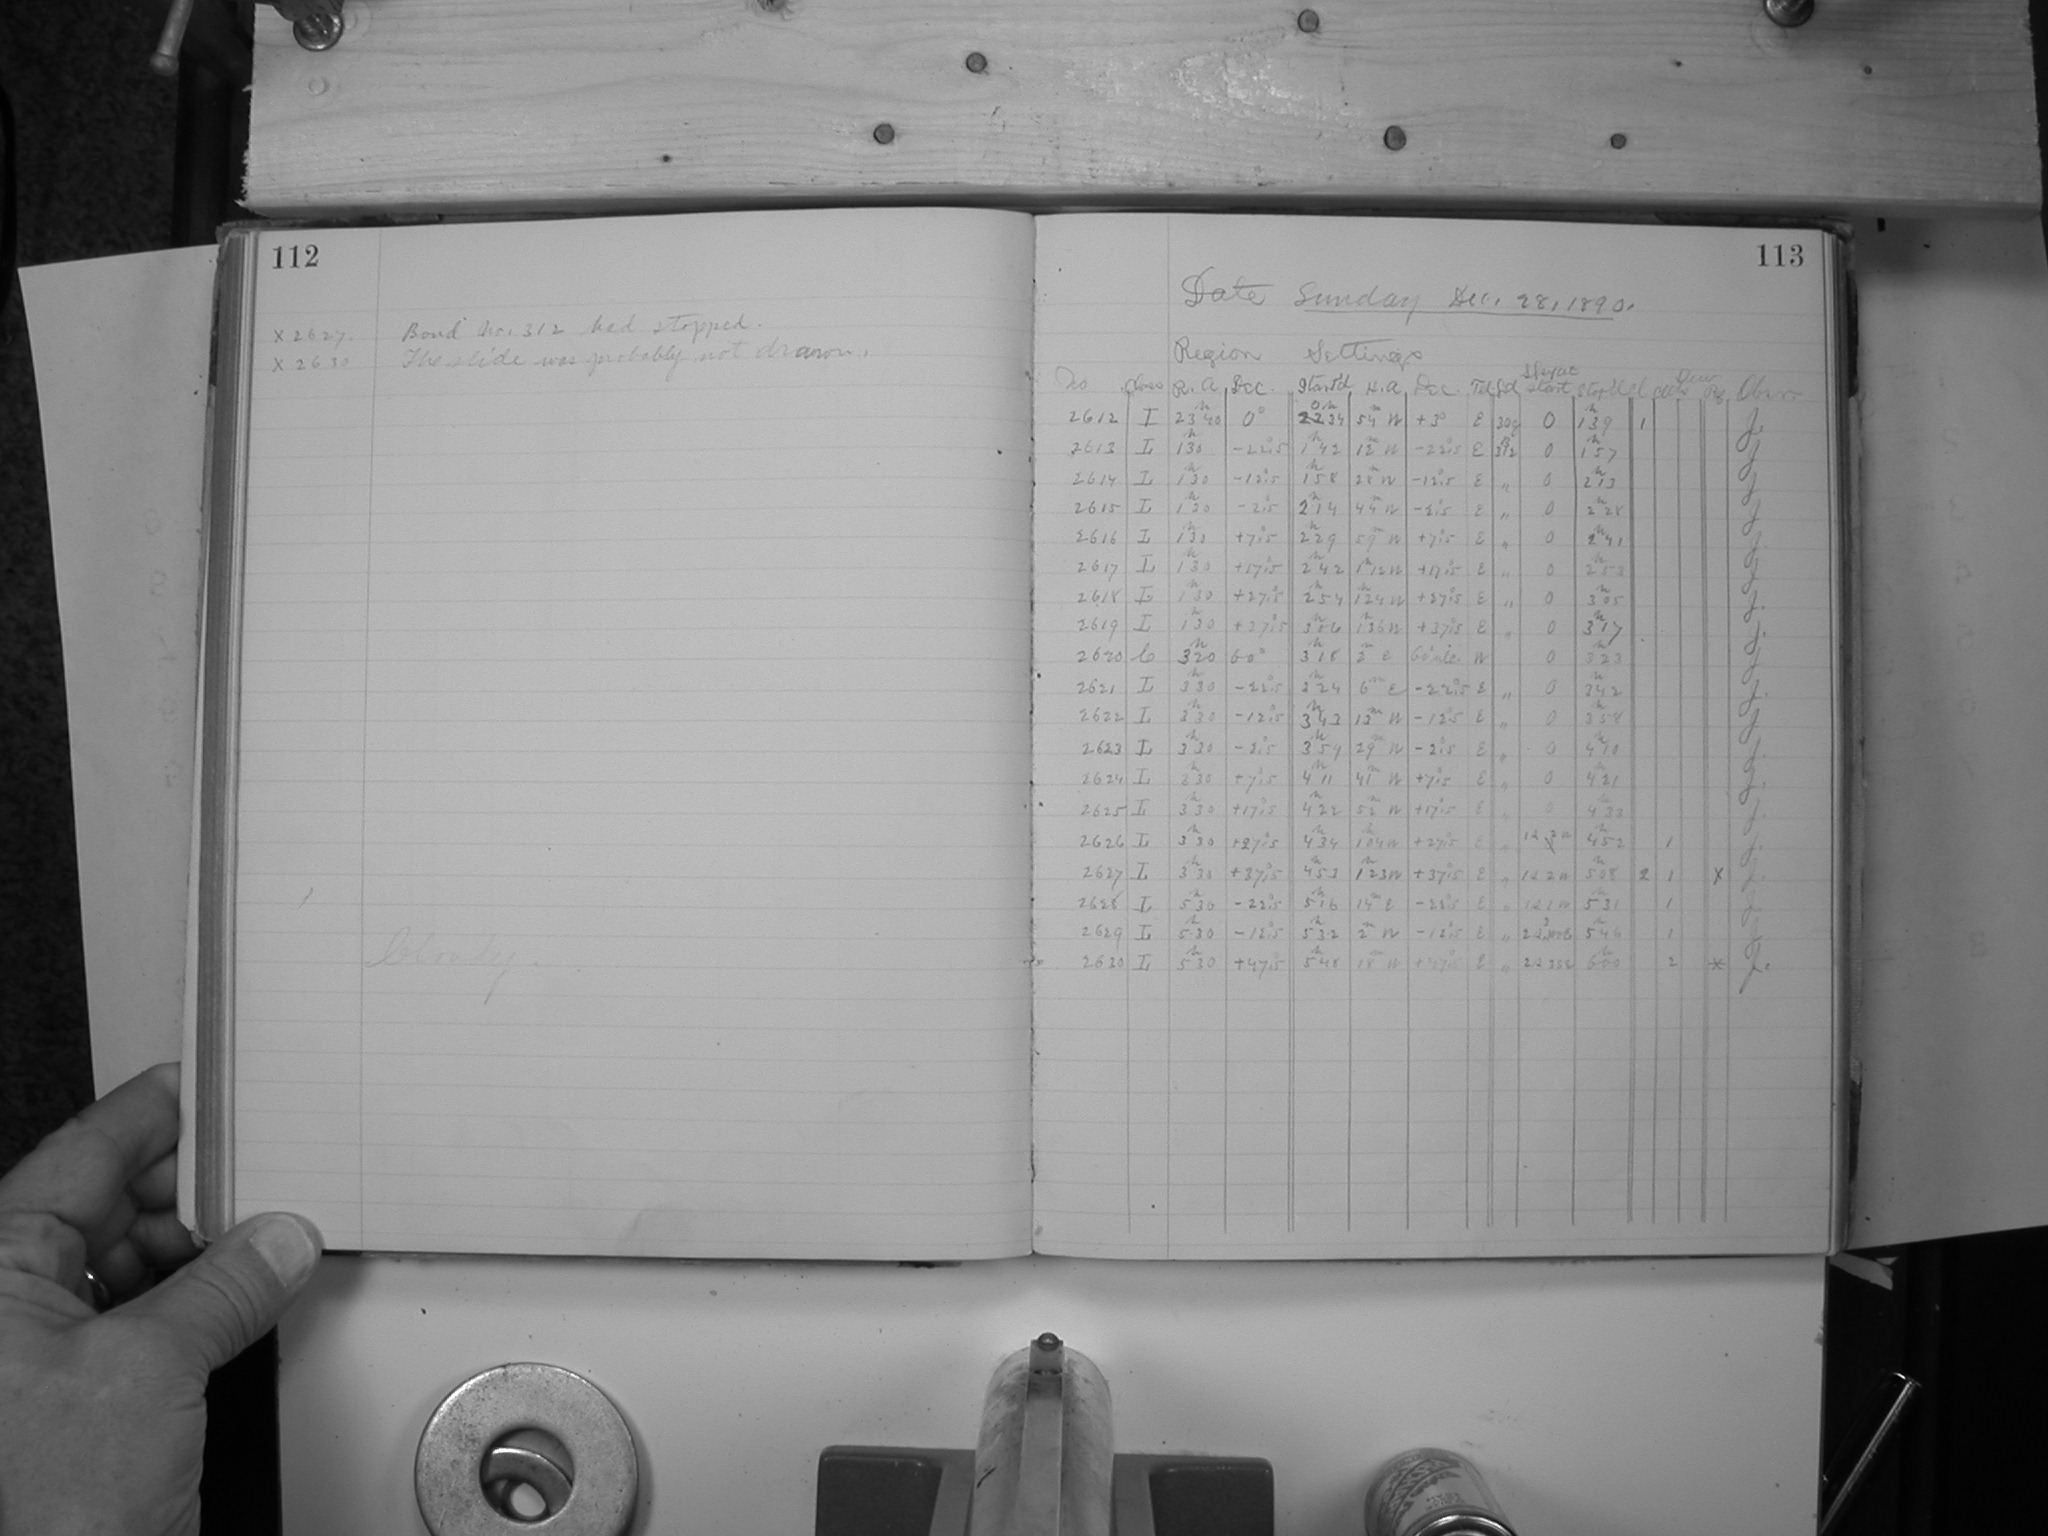 112
X 2627. Bond No. 312 had stopped.
X 2630 The slide was probably not drawn.
Cloudy.
113
Date Sunday Dec. 28, 1890.
Region Settings
No Class R.A. Dec. Start'd H.A. Dec. Tel Start Stop'd Cl. Obsr.
2612 I 23h40 0° 54m W +3° E 309 0 1h39 1 J.
2613 I 1h30 -22°.5 1h42 12m W -22°.5 E 312 0 1h57 J.
2614 I 1h30 -12°.5 1h58 28m W -12°.5 E " 0 2h13 J.
2615 I 1h30 -2°.5 2h14 44m W -2°.5 E " 0 2h28 J.
2616 I 1h30 +7°.5 2h29 59m W +7°.5 E " 0 2h41 J.
2617 I 1h30 +17°.5 2h42 1h12 W +17°.5 E " 0 2h53 J.
2618 I 1h30 +27°.5 2h54 1h24 W +27°.5 E " 0 3h05 J.
2619 I 1h30 +37°.5 3h06 1h36 W +37°.5 E " 0 3h17 J.
2620 C 3h20 60° 3h18 2m E W 0 3h23 J.
2621 I 3h30 -22°.5 3h24 6m E -22°.5 E " 0 3h42 J.
2622 I 3h30 -12°.5 3h43 13m W -12°.5 E " 0 3h58 J.
2623 I 3h30 -2°.5 3h59 29m W -2°.5 E " 0 4h10 J.
2624 I 3h30 +7°.5 4h11 41m W +7°.5 E " 0 4h21 J.
2625 I 3h30 +17°.5 4h22 52m W +17°.5 E " 0 4h33 J.
2626 I 3h30 +27°.5 4h34 1h04 W +27°.5 E " 4h52 1 J.
2627 I 3h30 +37°.5 4h53 1h23 W +37°.5 E " 12 2 W 5h08 2 1 X J.
2628 I 5h30 -22°.5 5h16 14m E -22°.5 E " 12 1 W 5h31 1 J.
2629 I 5h30 -12°.5 5h32 2m W -12°.5 E " 5h46 1 J.
2630 I 5h30 +47°.5 5h48 18m W +47°.5 E " 6h00 2 X J.